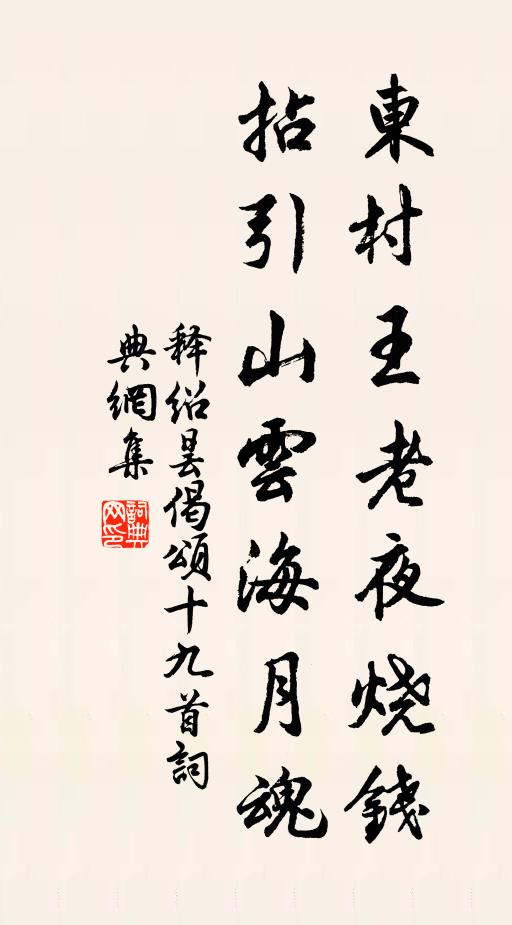 東村王老夜烧錢
拈引山雲海月魂
释绍昙偈頌十九首詞
典網集
詞典
网印